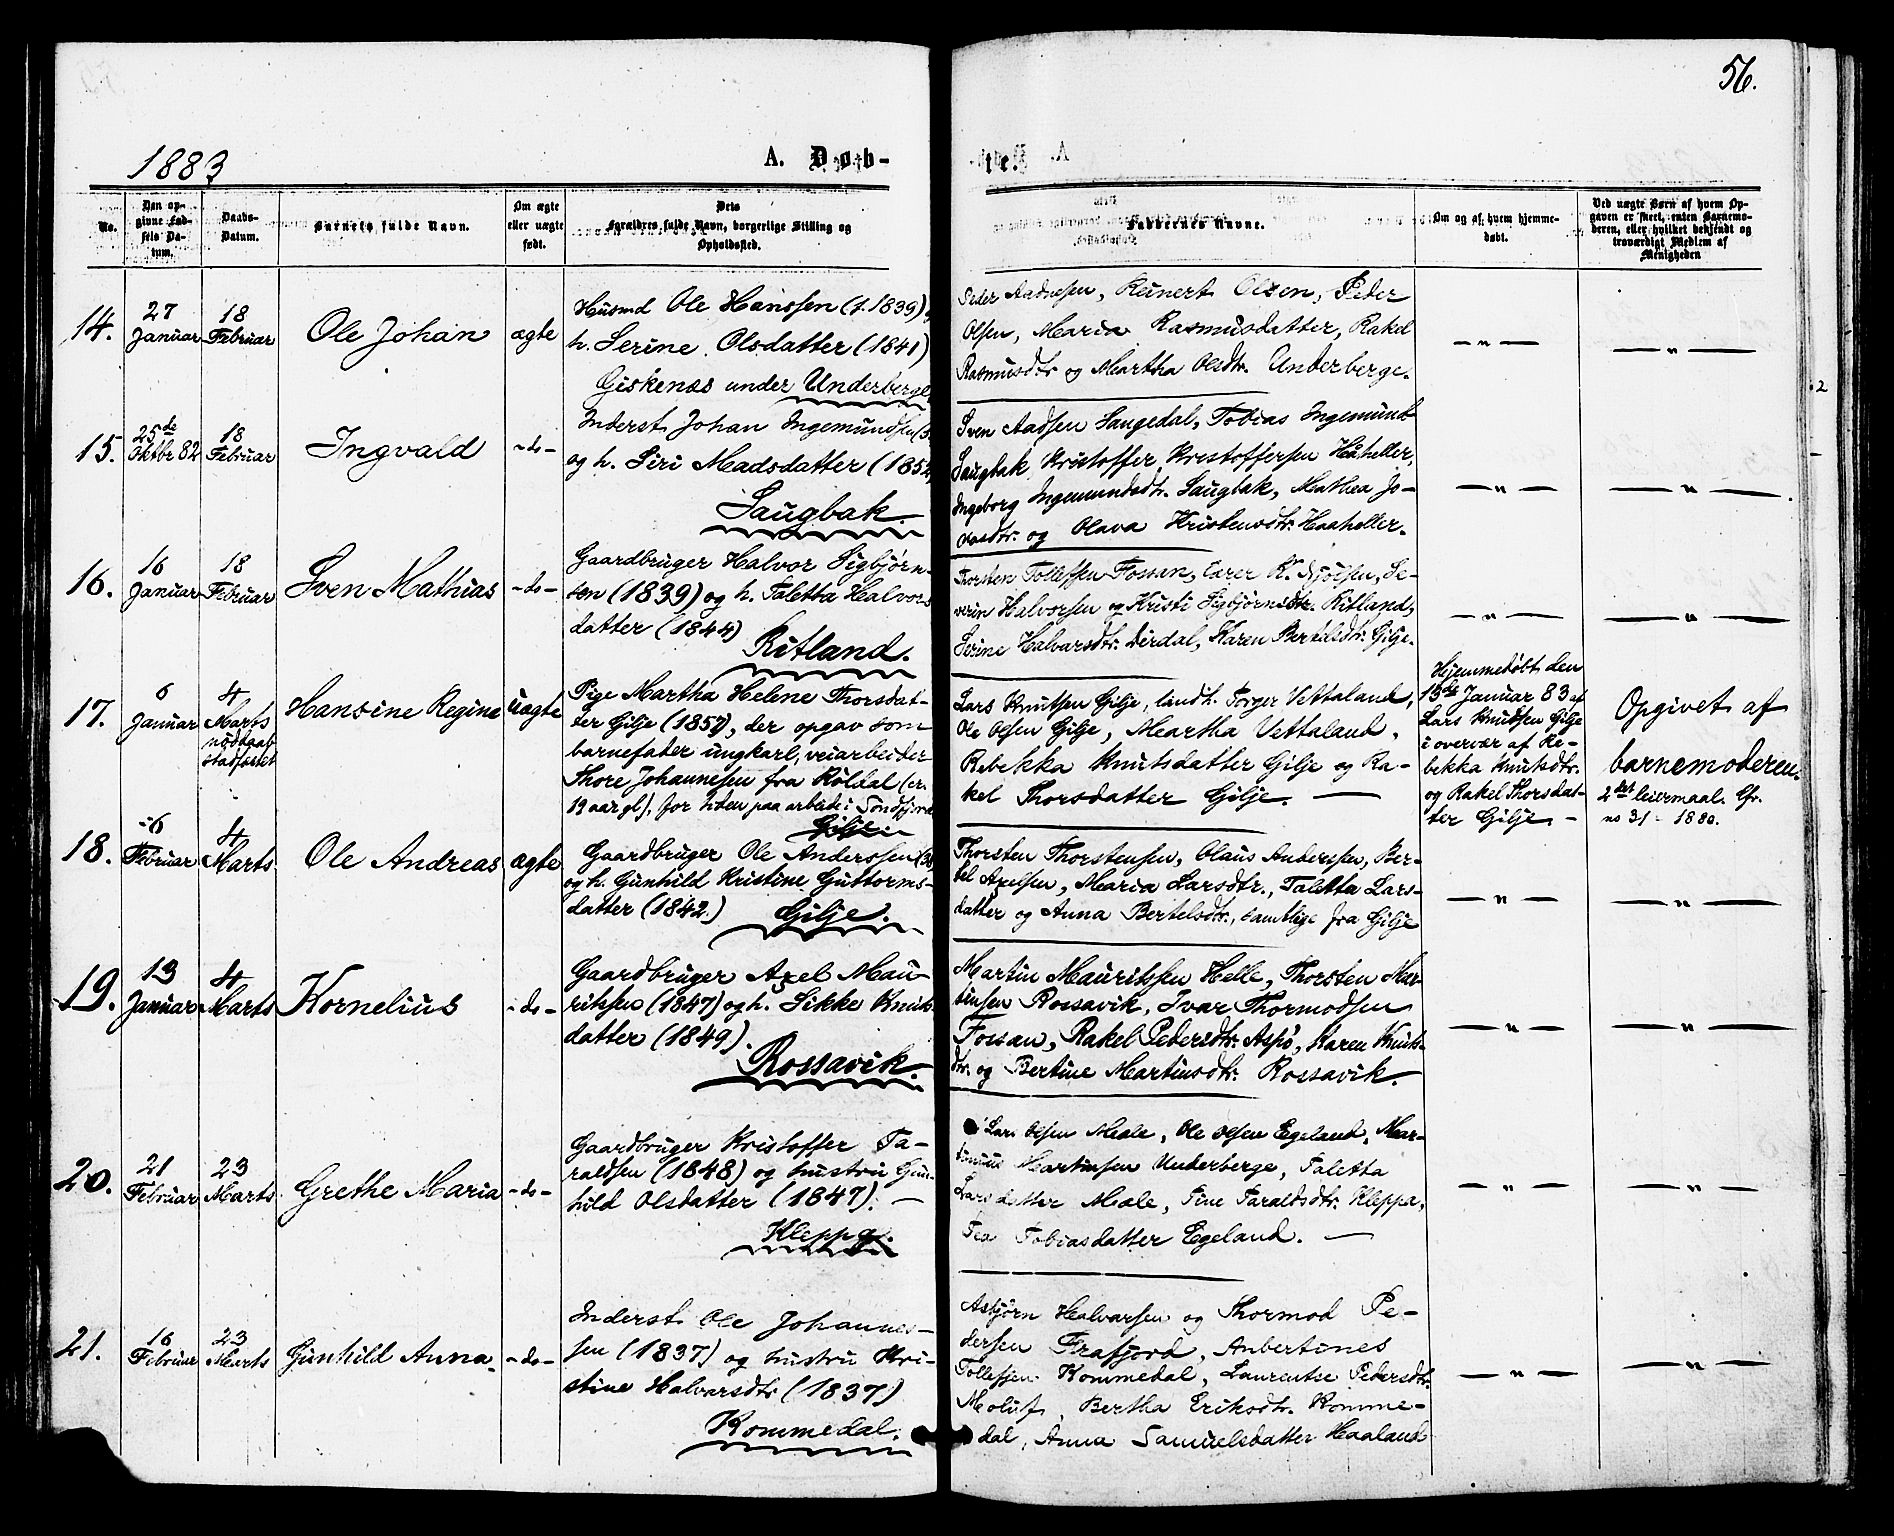 56.
1883
A. Døb-
te.
No.
Den op-
givne Fød-
sels Da-
tum.
Daabs-
Datum.
Barnets fulde Navn.
Om ægte
eller uægte
født.
Dets
Forældres fulde Navn, borgerlige Stilling og
Opholdssted.
Faddernes Navne.
Om og af hvem hjemme-
døbt.
Ved uægte Børn af hvem Op-
gaven er skeet, enten Barnemo-
deren, eller hvilket bekjendt og
troværdigt Medlem af
Menigheden
14.
27
Januar
18
Februar
Ole Johan
ægte
Husmd Ole Hanssen (f. 1839)
h. Serine Olsdatter (1841)
Giskenæs under Underberge
Peder Aadnesen, Reinert Olsen, Peder
Olsen, Maria Rasmusdatter, Rakel
Rasmusdtr og Martha Olsdtr. Underberge.
— " —
— " —
15.
25de
Oktbr 82
18
Februar
Ingvald
- do -
Inderst Johan Ingemundsen
og h. Siri Madsdatter (1852
Saugbak.
Sven Aadsen Saugedal, Tobias Ingemund
Saugbak, Kristoffer Kristoffersen Haheller,
Ingeborg Ingemundsdtr. Saugbak, Mathea Jo-
nasdtr. og Olava Kristensdtr. Haaheller.
— " —
— " —
16.
16
Januar
18
Februar
Sven Mathias
- do -
Gaardbruger Halvor Sigbjørn-
sen (1839) og h. Taletta Halvors
datter (1844)
Ritland.
Thorsten Tollefsen Fossan, Lærer K. Mjølsen, Se-
verin Halvorsen og Kristi Sigbjørnsdtr. Ritland,
Serine Halvarsdtr. Dirdal, Karen Bertelsdtr. Gilje.
— " —
— " —
17.
6
Januar
4
Marts
nødtaab
stadfæstet
Hansine Regine
uægte
Pige Martha Helene Thorsdat-
ter Gilje (1857), der opgav som
barnefader ungkarl, veiarbeider
Thore Johannesen fra Röldal (er
19 aar gl.), for tiden paa arbeide i Söndfjord
Gilje.
Lars Knutsen Gilje, landh. Torger Vettaland,
Ole Olsen Gilje, Martha Vettaland,
Rebekka Knutsdatter Gilje og Ra-
kel Thorsdatter Gilje. —
Hjemmedøbt den
15de Januar 83 af
Lars Knudsen Gilje
i overvær af Re-
bekka Knutsdtr.
og Rakel Thorsdat-
ter Gilje. -
Opgivet af
barnemoderen.
2det leiermaal. Cfr.
no 31 - 1880.
18.
6
Februar
4
Marts
Ole Andreas
ægte
Gaardbruger Ole Anderssen (38
og h. Gunhild Kristine Guttorms-
datter (1842.)
Gilje.
Thorsten Thorstensen, Olaus Andersen, Ber-
tel Axelsen, Maria Larsdtr., Taletta Lars-
datter og Anna Bertelsdtr., samtlige fra Gilje
— " —
— " —
19.
13
Januar
4
Marts
Kornelius
- do -
Gaardbruger Axel Mau-
ritssen (1847) og h. Sikke Knuts
datter (1849).
Rossavik.
Martin Mauritssen Helle, Thorsten Mar-
tinsen Rossavik, Ivar Thormodsen
Fossan, Rakel Pedersdtr. Aspö, Karen Knuts-
dtr. og Bertine Martinsdtr. Rossavik.
— " —
— " —
20.
21
Februar
23
Marts
Grethe Maria
- do -
Gaardbruger Kristoffer Ta-
raldsen (1848) og hustru Gun
hild Olsdatter (1847). —
Kleppa.
Lars Olsen Mæle, Ole Olsen Egeland, Mar-
tinius Martinsen Underberge, Taletta
Larsdatter Mæle, Tine Taraldsdtr. Kleppa,
Tea Tobiasdatter Egeland. —
— " —
— " —
21.
16
Februar
23
Marts
Gunhild Anna
- do -
Inderst Ole Johannes-
sen (1837) og hustru Kri-
stine Halvarsdtr (1837)
Kommedal.
Asbjørn Halvarsen og Thormod Pe-
dersen Frafjord, Anbertines
Tollefsen Kommedal, Laurentse Pedersdtr.
Moluf, Bertha Eriksdtr. Komme-
dal, Anna Samuelsdatter Haaland
— " —
— " —